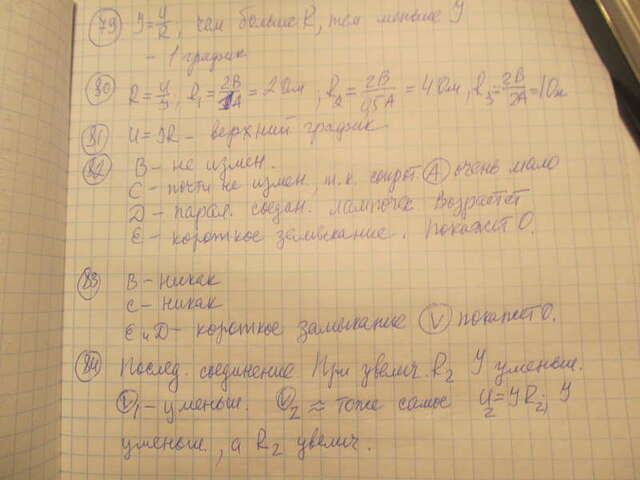 79 У=U/R, чем больше R, тем меньше У
- 1 график
80 R=U/У, R₁=2В/1А=2Ом; R₂=2В/0,5А=4Ом, R₃=2В/2А=1Ом
81 U=УR - верхний график
82 В - не измен.
С - почти не измен., т.к. сопрот. А очень мало
D - парал. соедин. лампочек возрастет
Е - короткое замыкание. Покажет 0.
83 В - никак
С - никак
Е и D - короткое замыкание V покажет 0.
84 Послед. соединение При увелич. R₂ У уменьш.
V₁ - уменьш. V₂ ≈ тоже самое U₂=УR₂; У
уменьш., а R₂ увелич.